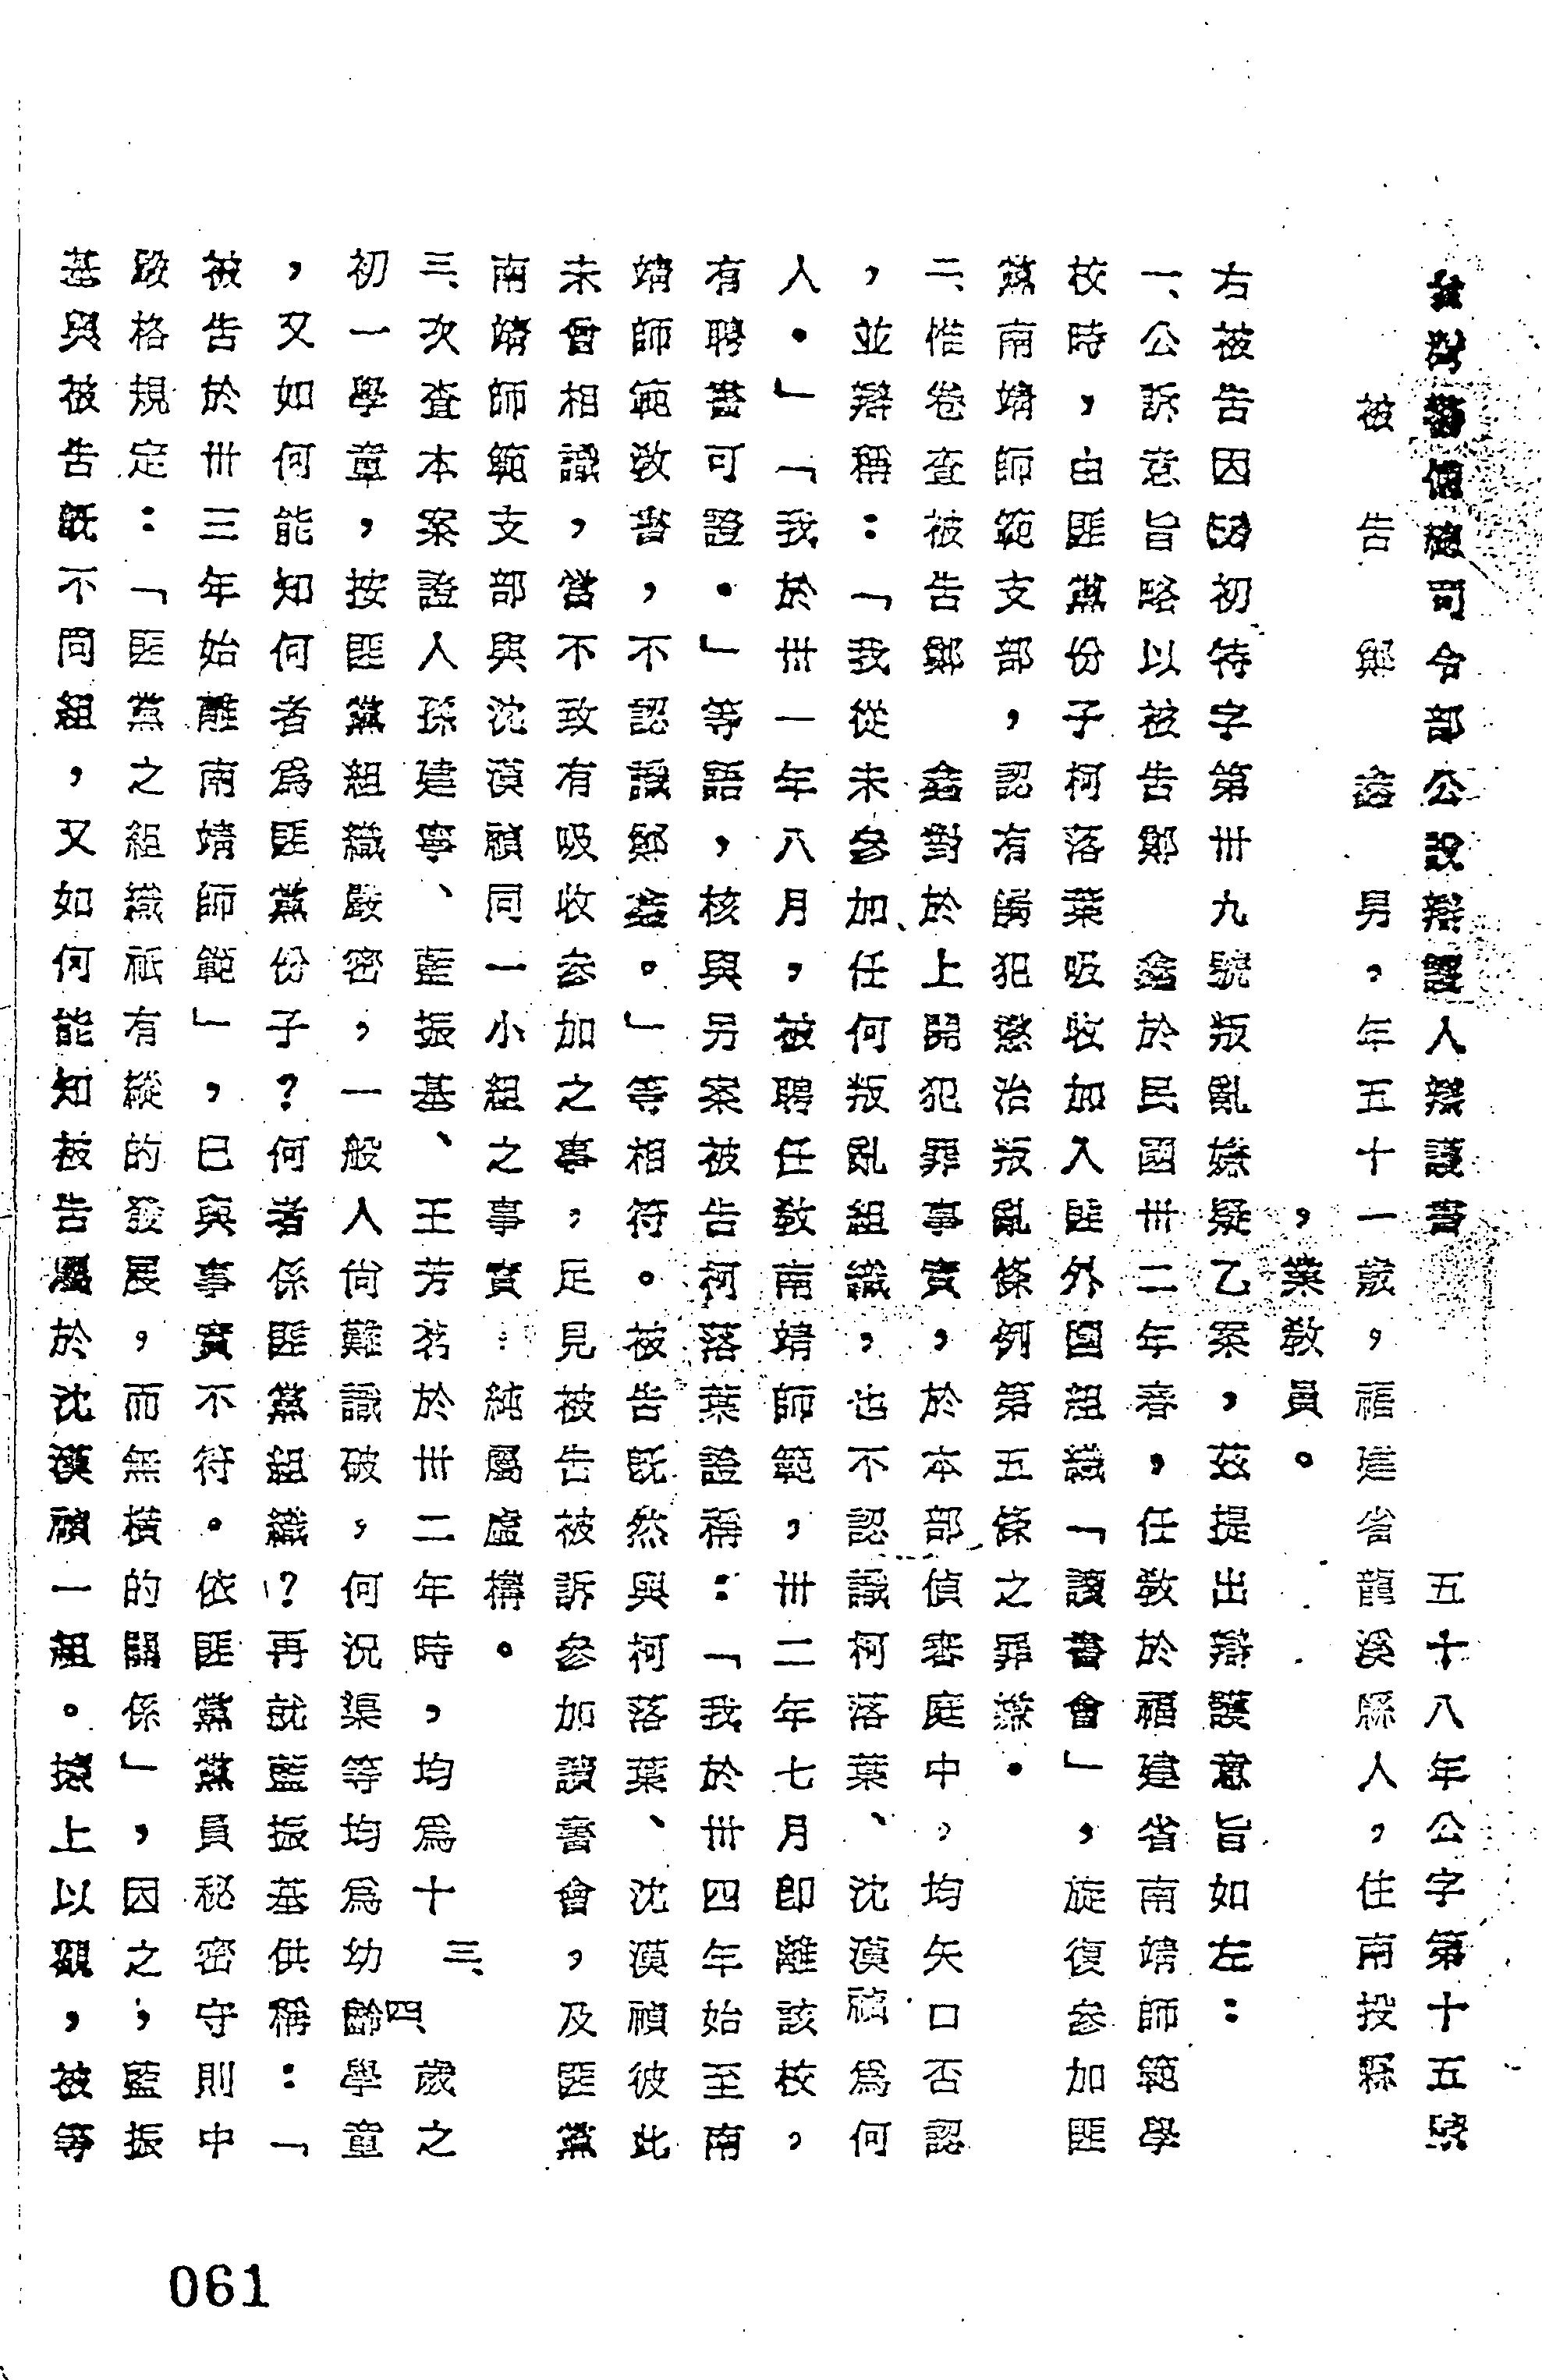 台灣警備總司令部公設辯護人辯護書　五十八年公字第十五號
被告　鄭鑫　男，年五十一歲，福建省龍溪縣人，住南投縣
，業教員。
右被告因初特字第卅九號叛亂嫌疑乙案，茲提出辯護意旨如左：
一、公訴意旨略以被告鄭鑫於民國卅二年春，任教於福建省南靖師範學
校時，由匪黨份子柯落葉吸收加入匪外國組織「讀書會」，旋復參加匪
黨南靖師範支部，認有觸犯懲治叛亂條例第五條之罪嫌．
二、惟卷查被告鄭鑫對於上開犯罪事實，於本部偵審庭中，均矢口否認
，並辯稱：「我從未參加任何叛亂組識，也不認識柯落葉、沈漠禎為何
人．」「我於卅一年八月，被聘任教南靖師範，卅二年七月即離該校，
有聘書可證．」等語，核與另案被告柯落葉證稱：「我於卅四年始至南
靖師範教書，不認識鄭鑫。」等相符。被告既然與柯落葉、沈漠禎彼此
未曾相識，當不致有吸收參加之事，足見被告被訴參加讀書會，及匪黨
南靖師範支部與沈漠禎同一小組之事實：純屬虛構。
三、次查本案證人孫建寧、藍振基、王芳茗於卅二年時，均為十三、四歲之
初一學童，按匪黨組織嚴密，一般人尙難識破，何況渠等均為幼齡學童
，又如何能知何者為匪黨份子？何者係匪黨組織？再就藍振基供稱：「
被告於卅三年始離南靖師範」，已與事實不符。依匪黨黨員秘密守則中
嚴格規定：「匪黨之組織祇有縱的發展，而無橫的關係」，因之，藍振
基與被告既不同組，又如何能知被告屬於沈漠禎一組。據上以觀，被等
061